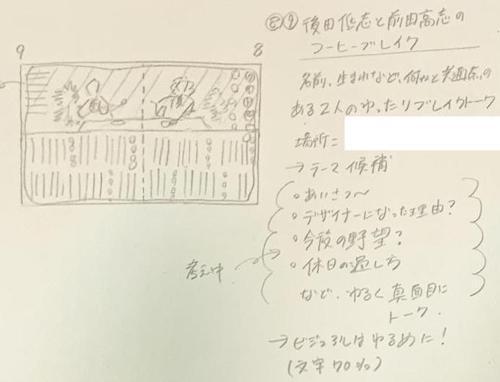 ⑧⑨ 後田低志と前田高志の
コーヒーブレイク
9
8
名前、生まれなど、何かと共通点の
ある2人のゆったりブレイクトーク
場所=
→テーマ候補
・あいさつ〜
・デザイナーになった理由?
・今後の野望?
・休日の過し方
など、ゆるく真面目に
トーク.
考え中
→ビジュアルはゆるめに!
(文字70%)